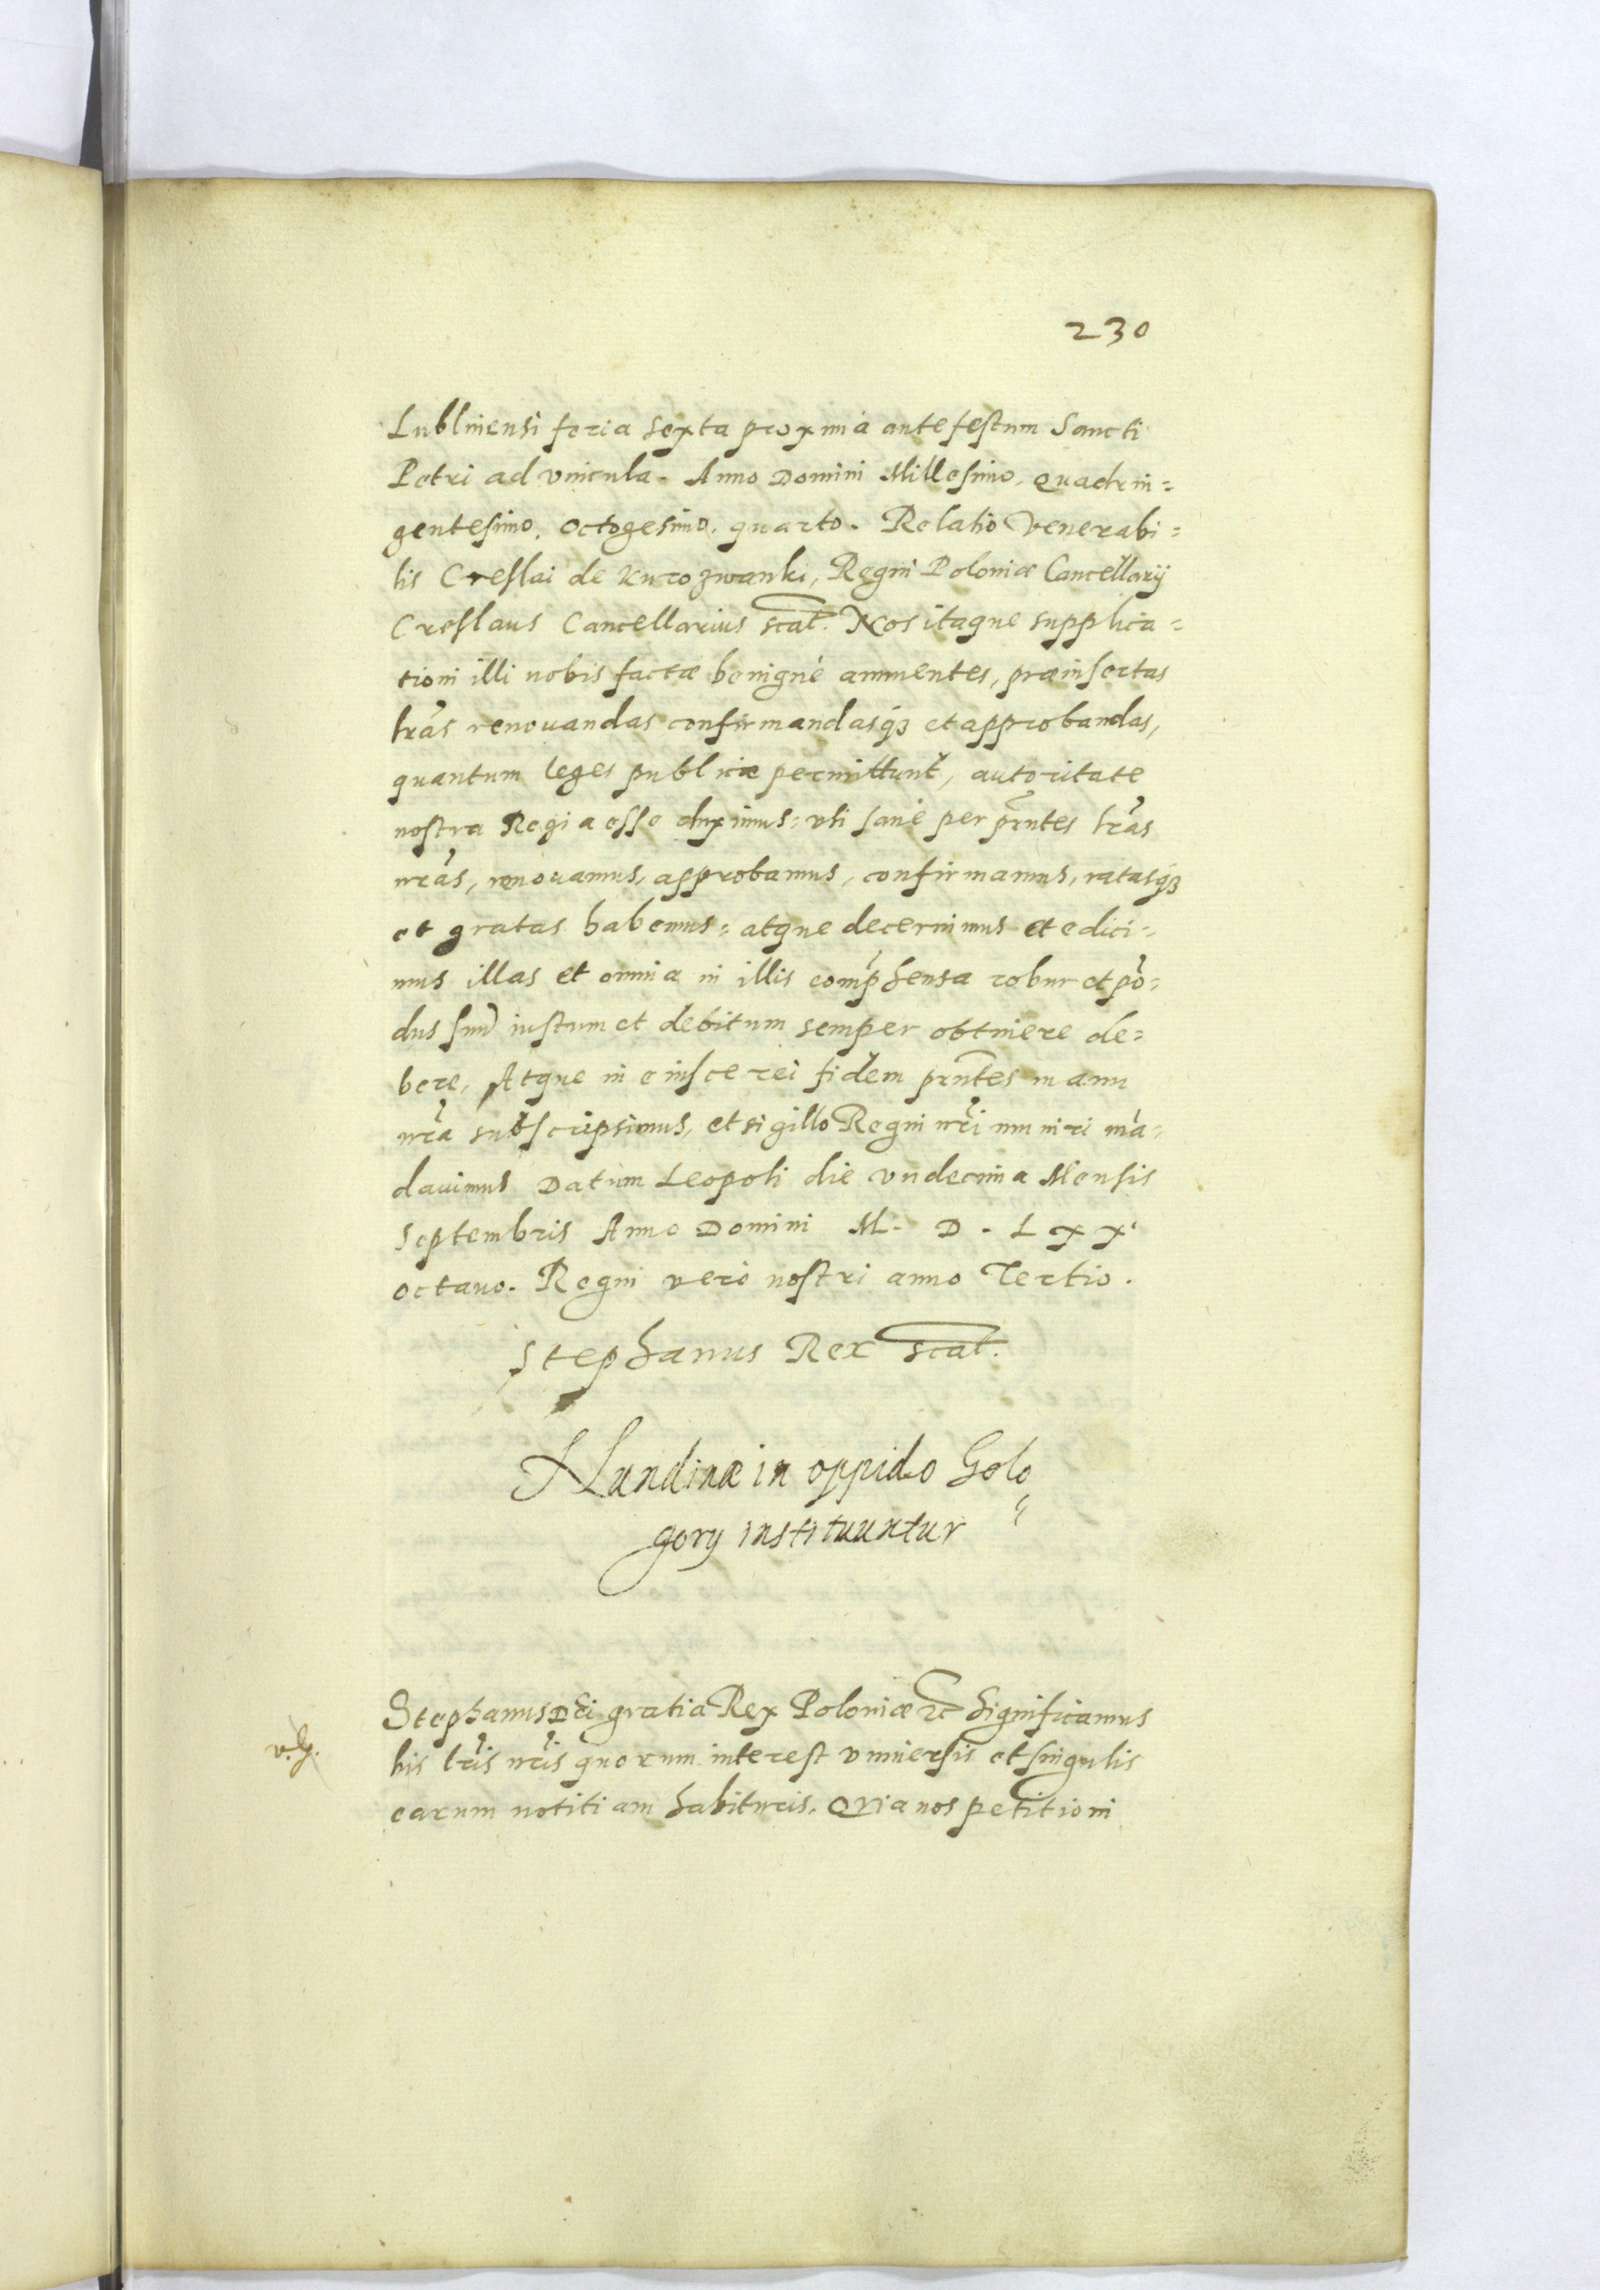 230
Lublinensi feria sexta proxima ante festum Sancti
Petri ad vincula. Anno Domini Millesimo, Quadrin=
gentesimo, Octogesimo, quarto. Relatio Venerabi=
lis Creslai de Kurozwanki, Regni Poloniæ Cancellarij
Creslaus Cancellarius scat. Nos itaque supplica=
tioni illi nobis factæ benignè annuentes, præinsertas
lras renouandas confirmandasq3 et approbandas,
quantum leges publicæ permittunt, autoritate
nostra Regia esse duximus: vti sanè per prntes lras
nras, renouamus, approbamus, confirmamus, ratasq3
et gratas habemus: atque decernimus et edici=
mus illas et omnia in illis comphensa robur et pō=
dus suū iustum et debitum semper obtinere de=
bere, Atque in eiusce rei fidem prntes manu
nra subscripsimus, et sigillo Regni nri muniri mā=
dauimus Datum Leopoli die vndecima Mensis
Septembris Anno Domini M. D. L x x
octauo. Regni verò nostri anno Tertio.
Stephanus Rex scat.
Nundinæ in oppido Golo
gory instituuntur
Stephanus Dei gratia Rex Poloniæ etc Significamus
his lris nris quorum interest vniuersis et singulis
earum notitiam habituris. Quia nos petitioni